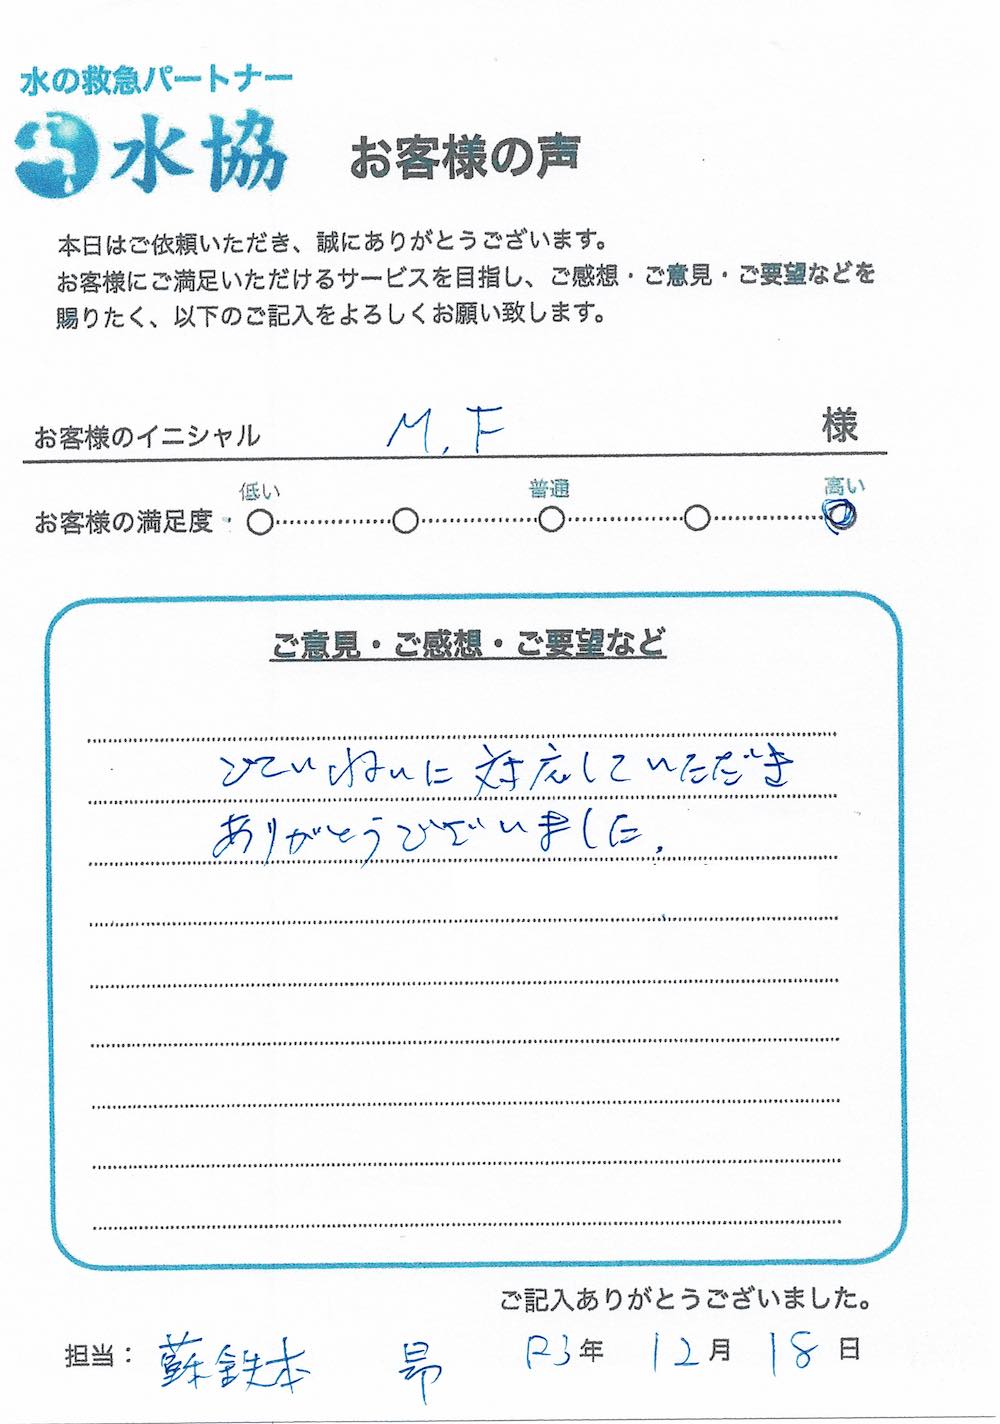 水の救急パートナー
水協
お客様の声
本日はご依頼いただき、誠にありがとうございます。
お客様にご満足いただけるサービスを目指し、ご感想・ご意見・ご要望などを
賜りたく、以下のご記入をよろしくお願い致します。
お客様のイニシャル M.F 様
低い 普通 高い
お客様の満足度
ご意見・ご感想・ご要望など
ごていねいに対応していただき
ありがとうございました.
ご記入ありがとうございました。
担当: 蘇鉄本 昴 R3年 12月 18日